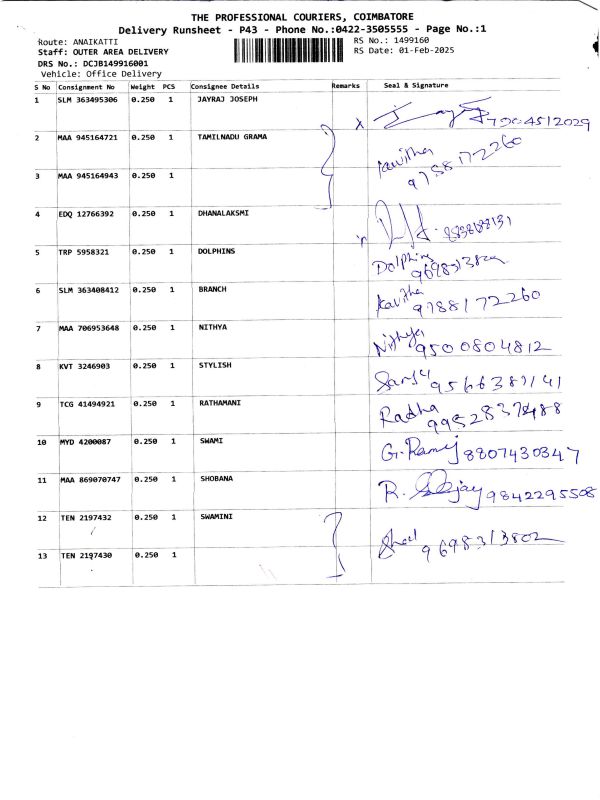 THE PROFESSIONAL COURIERS, COIMBATORE
Delivery Runsheet - P43 - Phone No.:0422-3505555 - Page No.:1
Route: ANAIKATTI RS No.: 1499160
Staff: OUTER AREA DELIVERY RS Date: 01-Feb-2025
DRS No.: DCJB149916001
Vehicle: Office Delivery
S No Consignment No Weight PCS Consignee Details Remarks Seal & Signature
1 SLM 363495306 0.250 1 JAYRAJ JOSEPH
2 MAA 945164721 0.250 1 TAMILNADU GRAMA Kavitha
3 MAA 945164943 0.250 1 9788172260
4 EDQ 12766392 0.250 1 DHANALAKSMI
5 TRP 5958321 0.250 1 DOLPHINS Dolphins
6 SLM 363408412 0.250 1 BRANCH Kavitha 9788172260
7 MAA 706953648 0.250 1 NITHYA Nithya 9500804812
8 KVT 3246903 0.250 1 STYLISH
9 TCG 41494921 0.250 1 RATHAMANI Radha
10 MYD 4200087 0.250 1 SWAMI 8807430347
11 MAA 869070747 0.250 1 SHOBANA R. 9842295508
12 TEN 2197432 0.250 1 SWAMINI
13 TEN 2197430 0.250 1 9698313802